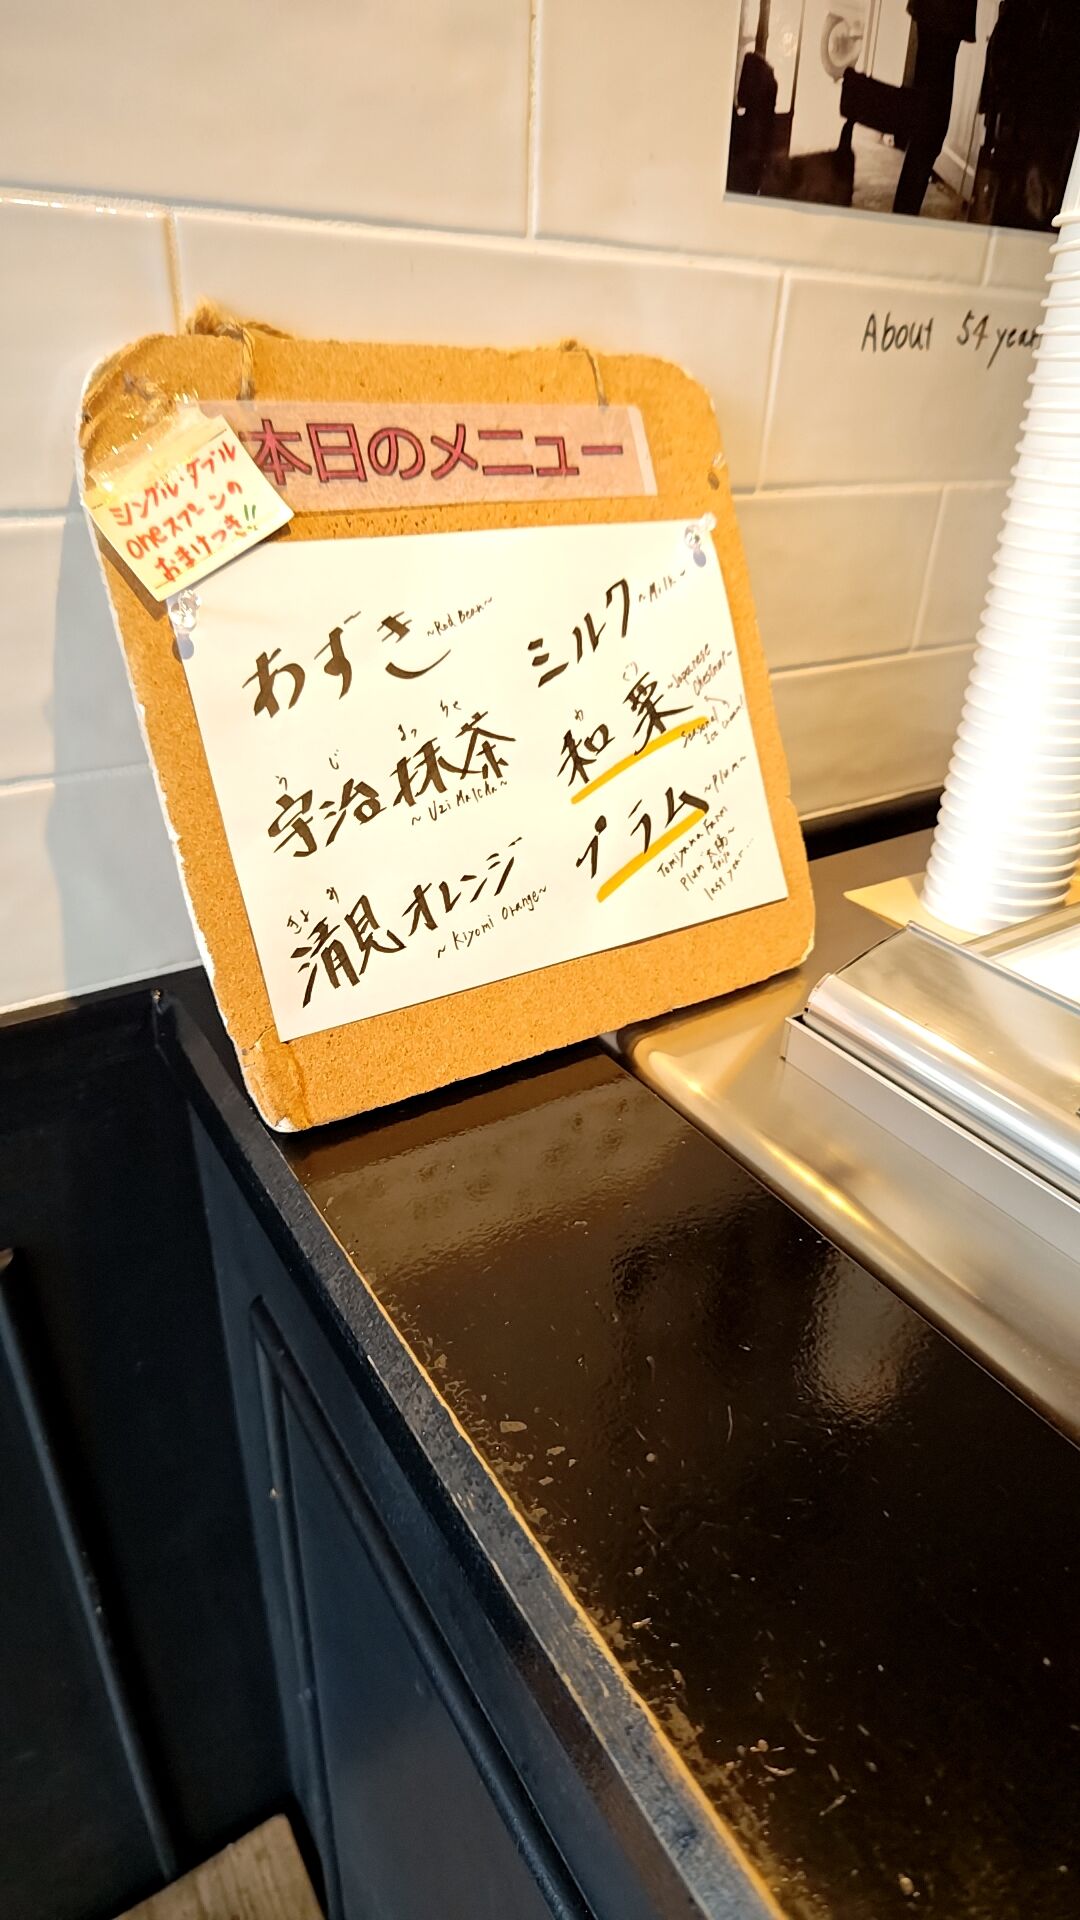 About 54 years
本日のメニュー
シングル・ダブル
oneスプーンの
おまけつき!!
あずき ~Red Bean~
うじ まっちゃ
宇治抹茶
~Uzi Matcha~
きよみ
清見オレンジ
~Kiyomi Orange~
ミルク ~Milk~
わ り
和栗 ~Japanese
Chestnut~
Seasonal
Ice Cream!
プラム ~Plum~
Tomiyama Farm
Plum 太陽~
taiyo
last year...